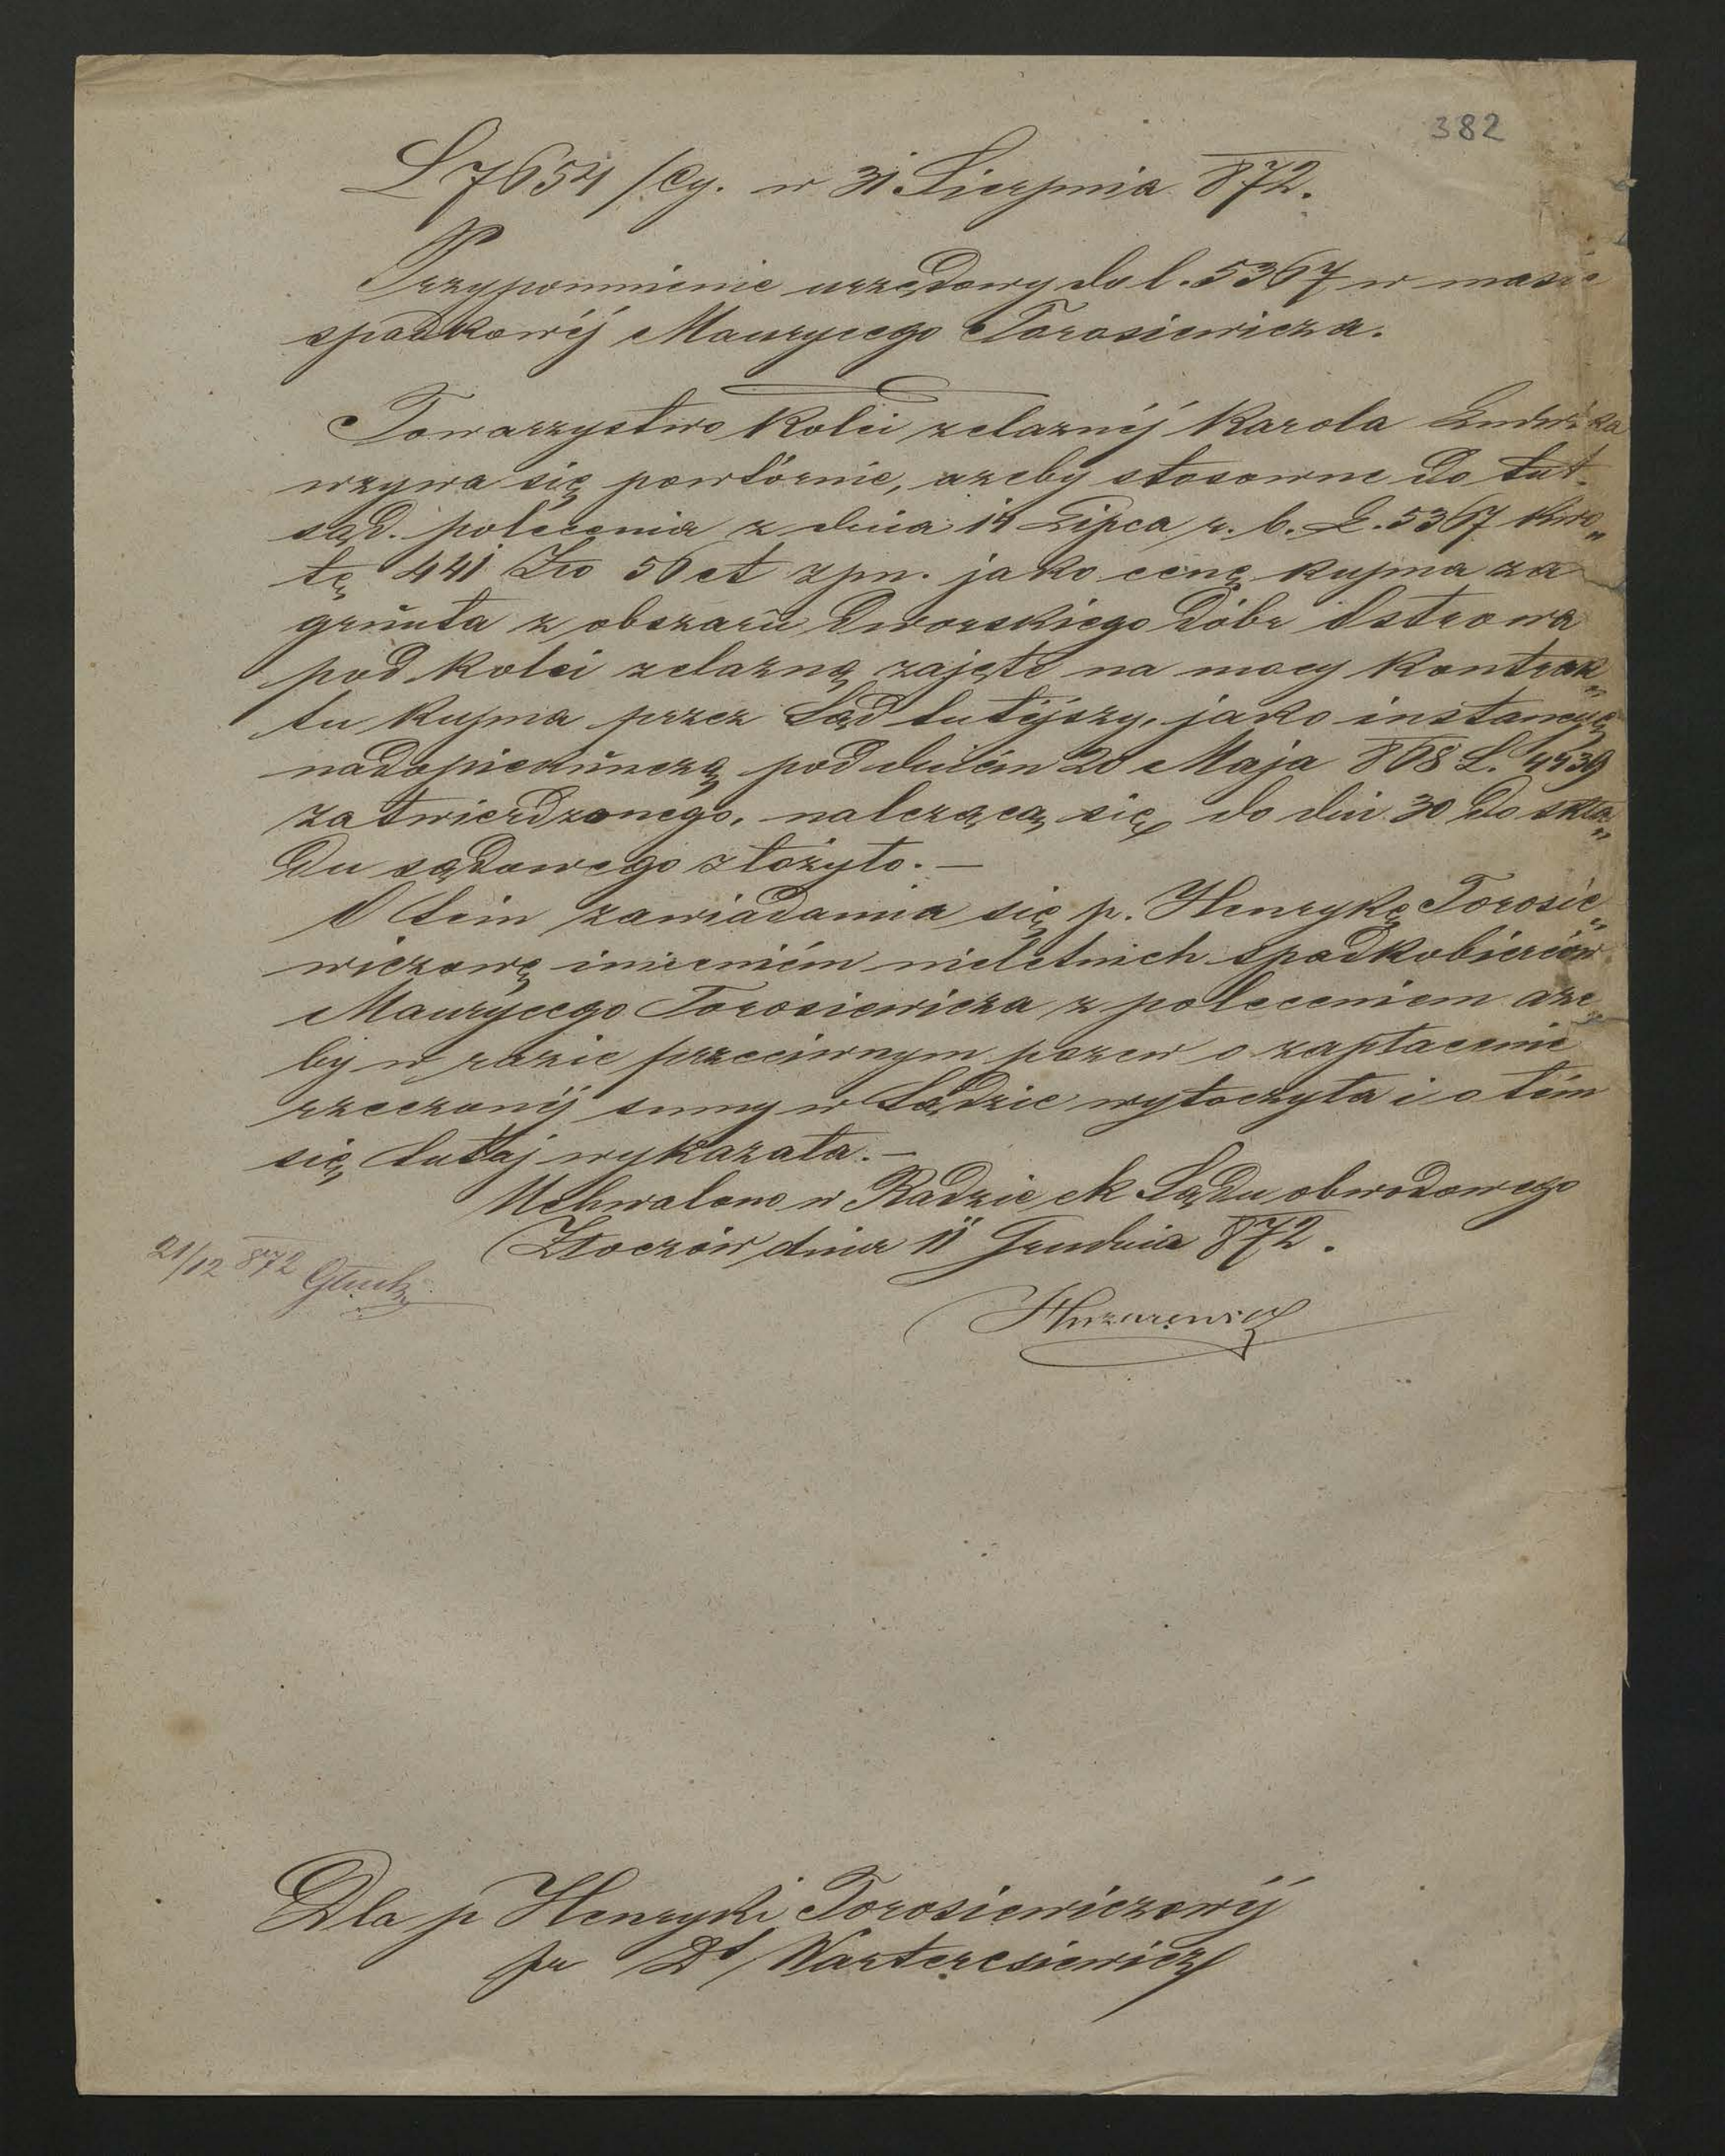 382
L 7654 /Cy. w 31 Sierpnia 872.
Przypomnienie urzędowy do l. 5367 w masie
spadkowéj Maurycego Torosiewicza.
Towarzystwo Kolei zelaznéj Karola Ludwika
wzywa się powtórnie, azeby stosowne do tut.
sąd. polecenia z dnia 14 Lipca r. b. L. 5367 kwo„
tę 441 Zło 56 ct zpn. jako cenę kupna za
grunta z obszaru Dworskiego Dóbr Ostrowa
pod kolei zelazną zajęte na mocy Kontrak„
tu kupna przez Sąd tutéjszy, jako instancyę
nadopiekunczą pod dniém 20 Maja 868 L. 4439
zatwierdzonego, nalezącą się do dni 30 do skła„
du sądowego złożyło. —
O tém zawiadamia się p. Henrykę Torosie„
wiczowę imieniém nieletnich spadkobierców
Maurycego Torosiewicza z poleceniem aze„
by w razie przeciwnym pozew o zapłacenie
rzeczonéj sumy w Sądzie wytoczyła i o tém
się tutaj wykazała. —
Uchwalono w Radzie ck Sądu obwodowego
Złoczów dnia 11 Grudnia 872.
21/12 872
Dla p Henryki Torosiewiczowéj
pr Dr Warteresiewicz